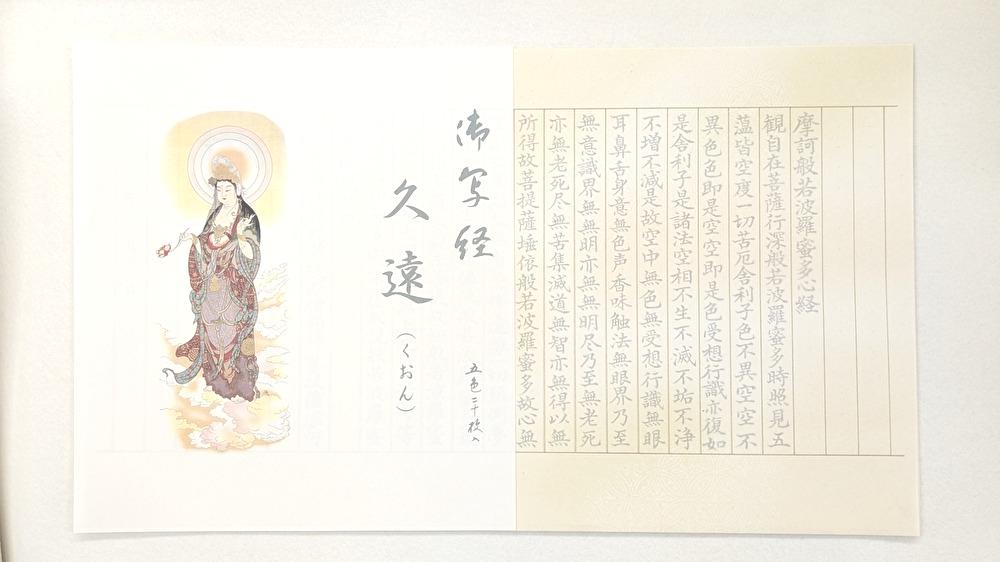 摩訶般若波羅蜜多心経
観自在菩薩行深般若波羅蜜多時照見五
薀皆空度一切苦厄舎利子色不異空空不
異色色即是空空即是色受想行識亦復如
是舎利子是諸法空相不生不滅不垢不浄
不増不減是故空中無色無受想行識無眼
耳鼻舌身意無色声香味触法無眼界乃至
無意識界無無明亦無無明尽乃至無老死
亦無老死尽無苦集滅道無智亦無得以無
所得故菩提薩埵依般若波羅蜜多故心無
御写経
五色二十枚入
久遠
(くおん)